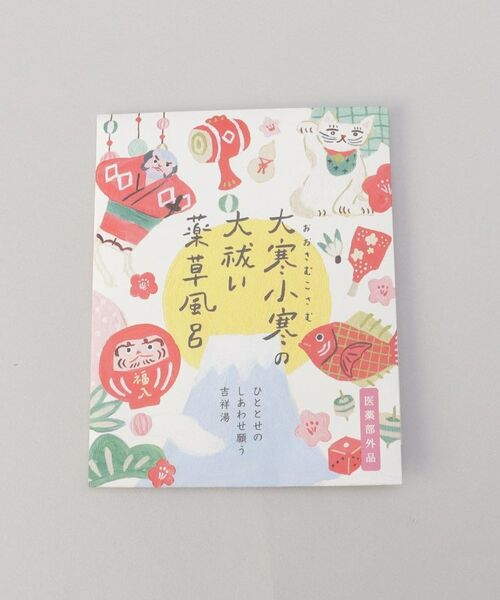 おおさむこさむ
大寒小寒の
大祓い
薬草風呂
ひととせの
しあわせ願う
吉祥湯
医薬部外品
福入